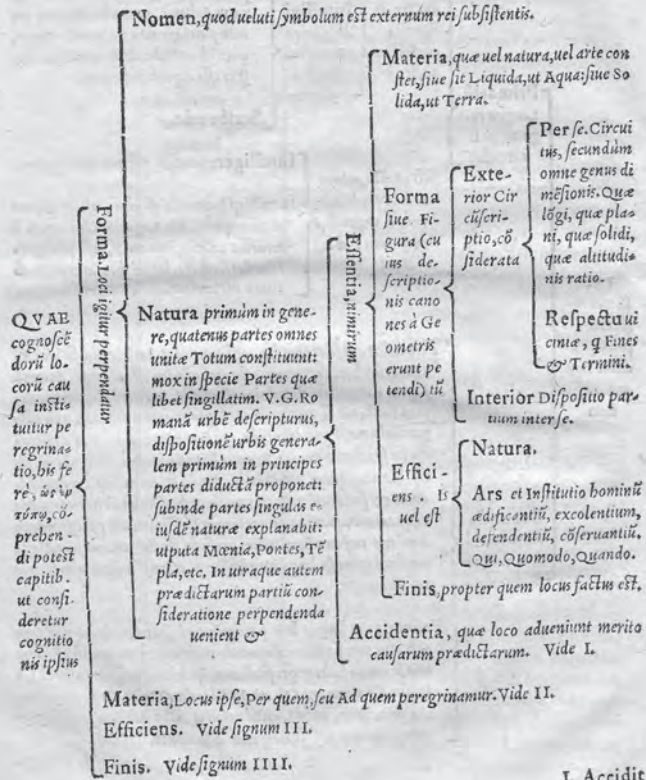 QVAE
cognoscē
dorū lo-
corū cau
sa insti-
tuitur pe
regrina-
tio, his fe
rè, ὡς ἐν
τύπῳ, cō-
prehen-
di potest
capitib.
ut consi-
deretur
cognitio
nis ipsius
Forma. Loci igitur perpendatur
Nomen, quod ueluti symbolum est externum rei subsistentis.
Natura primùm in gene-
re, quatenus partes omnes
unitæ Totum constituunt:
mox in specie Partes quæ
libet singillatim. V.G. Ro
manā urbē descripturus,
dispositionē urbis genera-
lem primùm in principes
partes diductā proponet:
subinde partes singulas e-
iusdē naturæ explanabit:
utputa Mœnia, Pontes, Tē
pla, etc. In utraque autem
prædictarum partiū con-
sideratione perpendenda
uenient &
Essentia, nimirum
Materia, quæ uel natura, uel arte con
stet, siue sit Liquida, ut Aqua: siue So
lida, ut Terra.
Forma
siue Fi-
gura (cu
ius de-
scriptio-
nis cano
nes à Ge
ometris
erunt pe
tendi) tū
Exte-
rior Cir
cūscri-
ptio, cō
siderata
Per se. Circui
tus, secundùm
omne genus di
mēsionis. Quæ
lōgi, quæ pla-
ni, quæ solidi,
quæ altitudi-
nis ratio.
Respectu ui
ciniæ, q Fines
& Termini.
Interior Dispositio par-
tium inter se.
Effici-
ens. Is
uel est
Natura.
Ars et Institutio hominū
ædificantiū, excolentium,
defendentiū, cōseruantiū.
Qui, Quomodo, Quando.
Finis, propter quem locus factus est.
Accidentia, quæ loco adueniunt merito
causarum prædictarum. Vide I.
Materia, Locus ipse, Per quem, seu Ad quem peregrinamur. Vide II.
Efficiens. Vide signum III.
Finis. Vide signum IIII.
I. Accidit